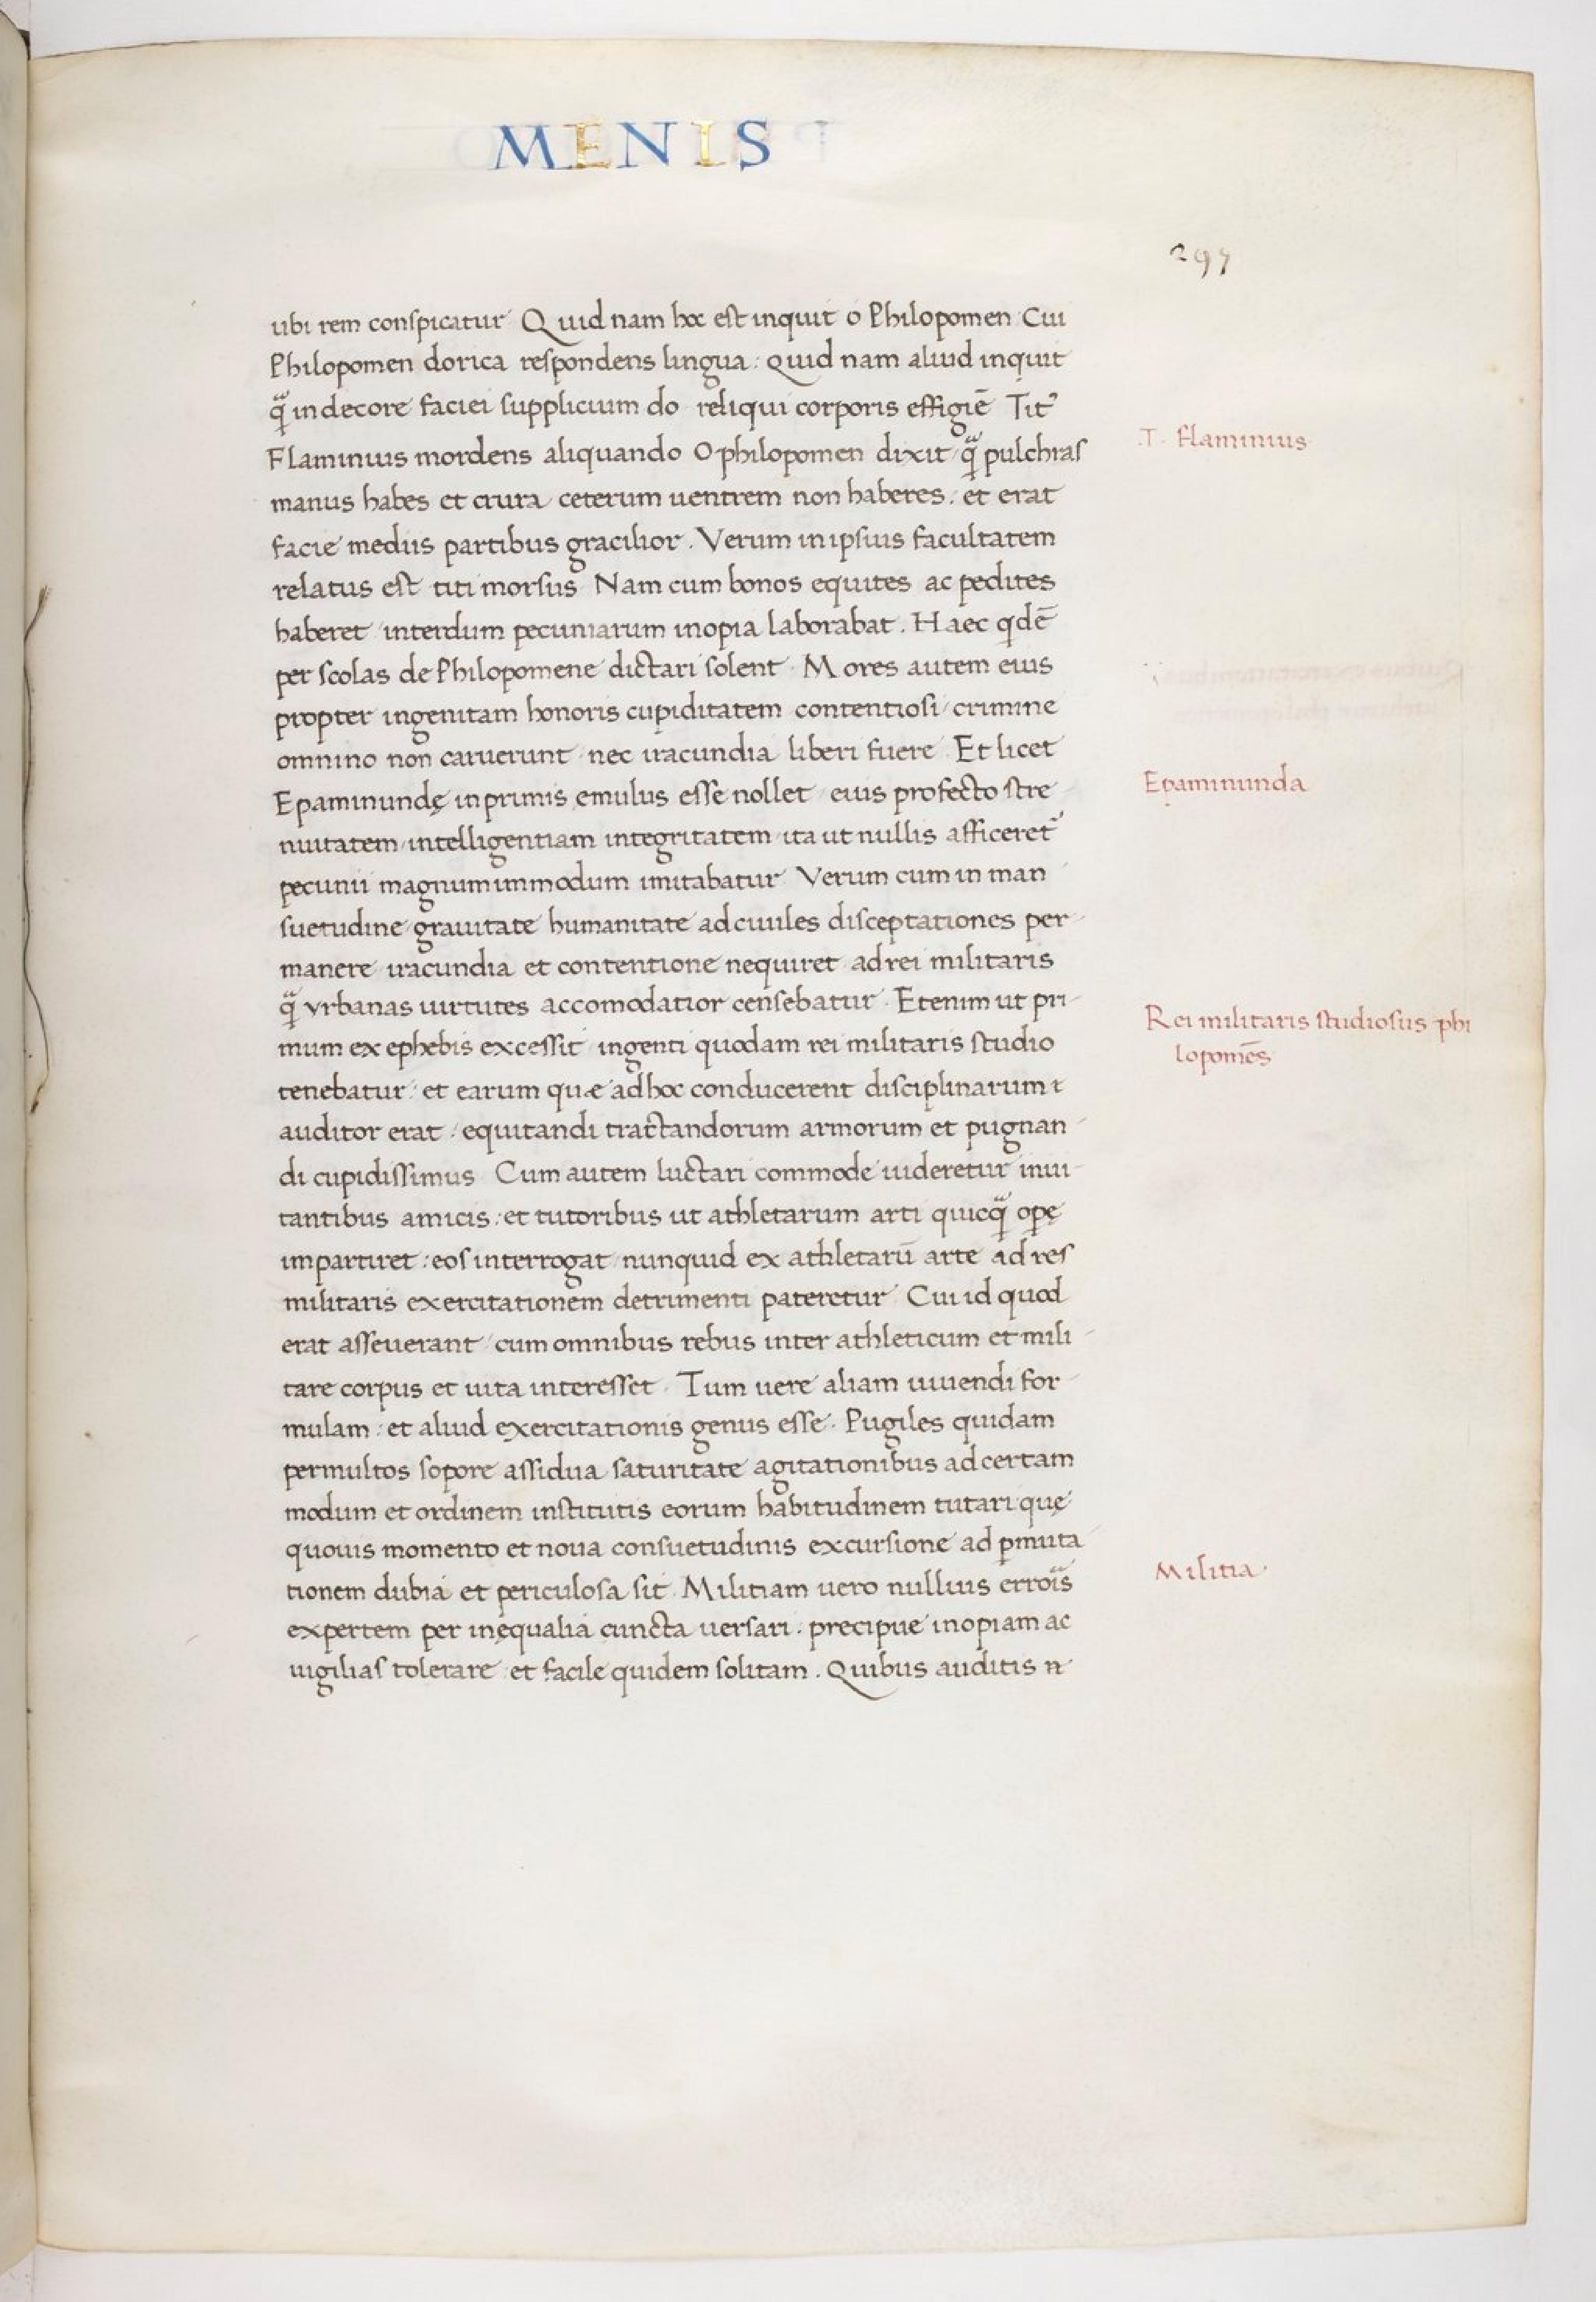 MENIS
297
ubi rem conspicatur Quid nam hoc est inquit o Philopomen Cui
Philopomen dorica respondens lingua: Quid nam aliud inquit
q̃ indecore faciei supplicium do reliqui corporis effigiē Tit᾿
T. Flaminius
Flaminius mordens aliquando O philopomen dixit q̃ pulchras
manus habes et crura ceterum uentrem non haberes: et erat
facie mediis partibus gracilior. Verum in ipsius facultatem
relatus est titi morsus Nam cum bonos equites ac pedites
haberet interdum pecuniarum inopia laborabat. Haec qdē
per scolas de Philopomene dictari solent. Mores autem eius
propter ingenitam honoris cupiditatem contentiosi crimine
omnino non caruerunt nec iracundia liberi fuere Et licet
Epaminunda
Epaminundę inprimis emulus esse nollet eius profecto stre-
nuitatem intelligentiam integritatem ita ut nullis afficeret᾿
pecunii magnum immodum imitabatur Verum cum in man
suetudine grauitate humanitate ad ciuiles disceptationes per-
manere iracundia et contentione nequiret ad rei militaris
q̃ vrbanas uirtutes accomodatior censebatur. Etenim ut pri-
Rei militaris studiosus phi
lopomēs
mum ex ephebis excessit ingenti quodam rei militaris studio
tenebatur: et earum quæ ad hoc conducerent disciplinarum
auditor erat: equitandi tractandorum armorum et pugnan-
di cupidissimus Cum autem luctari commode uideretur inui-
tantibus amicis: et tutoribus ut athletarum arti quicq̃ opę
impartiret: eos interrogat nunquid ex athletarū arte ad res
militaris exercitationem detrimenti pateretur Cui id quod
erat asseuerant cum omnibus rebus inter athleticum et mili-
tare corpus et uita interesset. Tum uere aliam uiuendi for-
mulam: et aliud exercitationis genus esse. Pugiles quidam
permultos sopore assidua saturitate agitationibus ad certam
modum et ordinem institutis eorum habitudinem tutari quę
quouis momento et noua consuetudinis excursione ad pmuta
Militia.
tionem dubia et periculosa sit. Militiam uero nullius errois
expertem per inęqualia cuncta uersari: precipue inopiam ac
uigilias tolerare et facile quidem solitam. Quibus auditis n